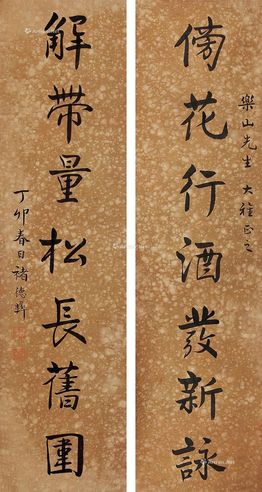 樂山先生大雅正之
傍花行酒發新詠
解帶量松長舊圍
丁卯春日褚德彝